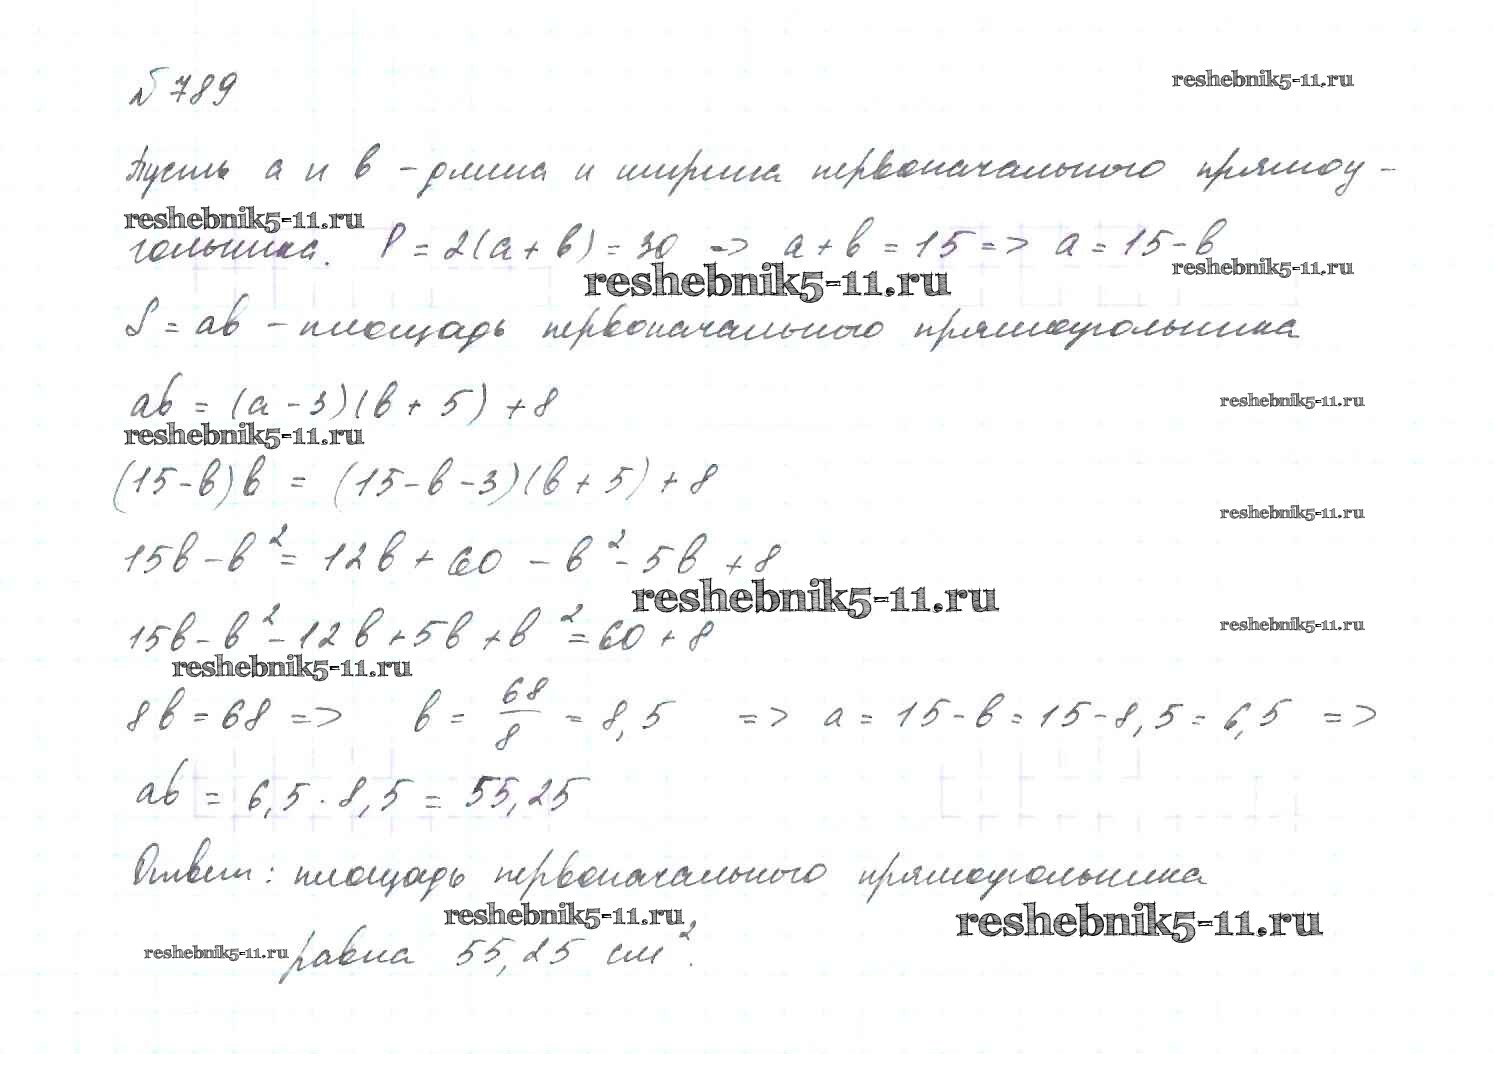 № 789
reshebnik5-11.ru
Пусть a и b – длина и ширина первоначального прямоу-
reshebnik5-11.ru
гольника. P = 2(a + b) = 30 => a + b = 15 => a = 15 - b
reshebnik5-11.ru
reshebnik5-11.ru
S = ab – площадь первоначального прямоугольника
ab = (a - 3)(b + 5) + 8
reshebnik5-11.ru
reshebnik5-11.ru
(15 - b)b = (15 - b - 3)(b + 5) + 8
reshebnik5-11.ru
15b - b² = 12b + 60 - b² - 5b + 8
reshebnik5-11.ru
15b - b² - 12b + 5b + b² = 60 + 8
reshebnik5-11.ru
reshebnik5-11.ru
8b = 68 => b = 68/8 = 8,5 => a = 15 - b = 15 - 8,5 = 6,5 =>
ab = 6,5 · 8,5 = 55,25
Ответ: площадь первоначального прямоугольника
reshebnik5-11.ru
reshebnik5-11.ru
reshebnik5-11.ru
равна 55,25 см².